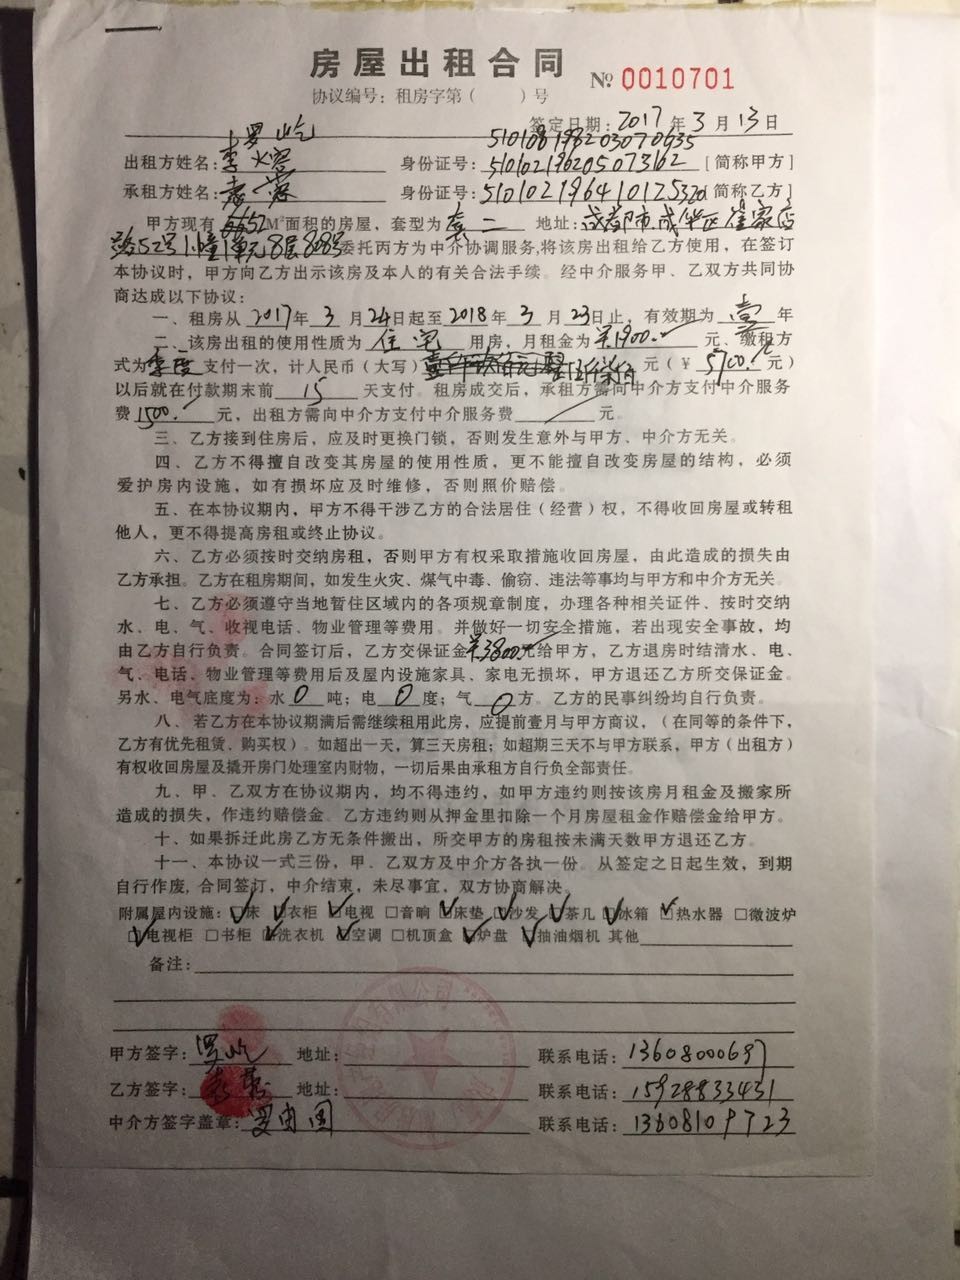 房屋出租合同 № 0010701
协议编号：租房字第（ ）号
签定日期：2017年3月13日
罗屹 510108198203070635
出租方姓名：李 身份证号：510102196205073162 [简称甲方]
承租方姓名： 蓉 身份证号：510102196410125320 [简称乙方]
甲方现有 M²面积的房屋，套型为套二 地址：成都市成华区崔家店
路52号1幢1单元8层 委托丙方为中介协调服务,将该房出租给乙方使用，在签订
本协议时，甲方向乙方出示该房及本人的有关合法手续。经中介服务甲、乙双方共同协
商达成以下协议：
一、租房从2017年3月24日起至2018年3月23日止，有效期为壹年
二、该房出租的使用性质为住宅用房，月租金为¥1900.元、缴租方
式为季度支付一次，计人民币（大写） 元（¥5700.元）
以后就在付款期末前15天支付。租房成交后，承租方需向中介方支付中介服务
费1500.元，出租方需向中介方支付中介服务费 元。
三、乙方接到住房后，应及时更换门锁，否则发生意外与甲方、中介方无关。
四、乙方不得擅自改变其房屋的使用性质，更不能擅自改变房屋的结构，必须
爱护房内设施，如有损坏应及时维修，否则照价赔偿。
五、在本协议期内，甲方不得干涉乙方的合法居住（经营）权，不得收回房屋或转租
他人，更不得提高房租或终止协议。
六、乙方必须按时交纳房租，否则甲方有权采取措施收回房屋，由此造成的损失由
乙方承担。乙方在租房期间，如发生火灾、煤气中毒、偷窃、违法等事均与甲方和中介方无关。
七、乙方必须遵守当地暂住区域内的各项规章制度，办理各种相关证件、按时交纳
水、电、气、收视电话、物业管理等费用。并做好一切安全措施，若出现安全事故，均
由乙方自行负责。合同签订后，乙方交保证金¥3800元给甲方，乙方退房时结清水、电、
气、电话、物业管理等费用后及屋内设施家具、家电无损坏，甲方退还乙方所交保证金。
另水、电气底度为：水0吨；电0度；气0方。乙方的民事纠纷均自行负责。
八、若乙方在本协议期满后需继续租用此房，应提前壹月与甲方商议，（在同等的条件下，
乙方有优先租赁、购买权）。如超出一天，算三天房租；如超期三天不与甲方联系，甲方（出租方）
有权收回房屋及撬开房门处理室内财物，一切后果由承租方自行负全部责任。
九、甲、乙双方在协议期内，均不得违约，如甲方违约则按该房月租金及搬家所
造成的损失，作违约赔偿金。乙方违约则从押金里扣除一个月房屋租金作赔偿金给甲方。
十、如果拆迁此房乙方无条件搬出，所交甲方的房租按未满天数甲方退还乙方。
十一、本协议一式三份，甲、乙双方及中介方各执一份。从签定之日起生效，到期
自行作废,合同签订，中介结束，未尽事宜，双方协商解决。
附属屋内设施：☑床 ☑衣柜 ☑电视 □音响 ☑床垫 ☑沙发 ☑茶几 ☑冰箱 ☑热水器 □微波炉
☑电视柜 □书柜 ☑洗衣机 ☑空调 □机顶盒 ☑炉盘 ☑抽油烟机 其他
备注：
甲方签字：罗屹 地址： 联系电话：13608000697
乙方签字： 蓉 地址： 联系电话：15928833431
中介方签字盖章： 联系电话：13608109723